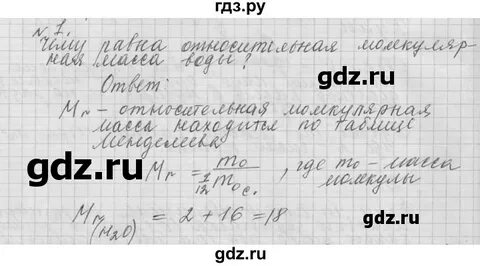 гдз.ру
№ 1.
Чему равна относительная молекуляр-
ная масса воды?
Ответ:
Mr – относительная молекулярная
масса находится по таблице
Менделеева
Mr = m₀ / (1/12 m₀c.) , где m₀ – масса
молекулы
Mr(H₂O) = 2 + 16 = 18
gdz.ru
gdz.ru
gdz.ru
gdz.ru
gdz.ru